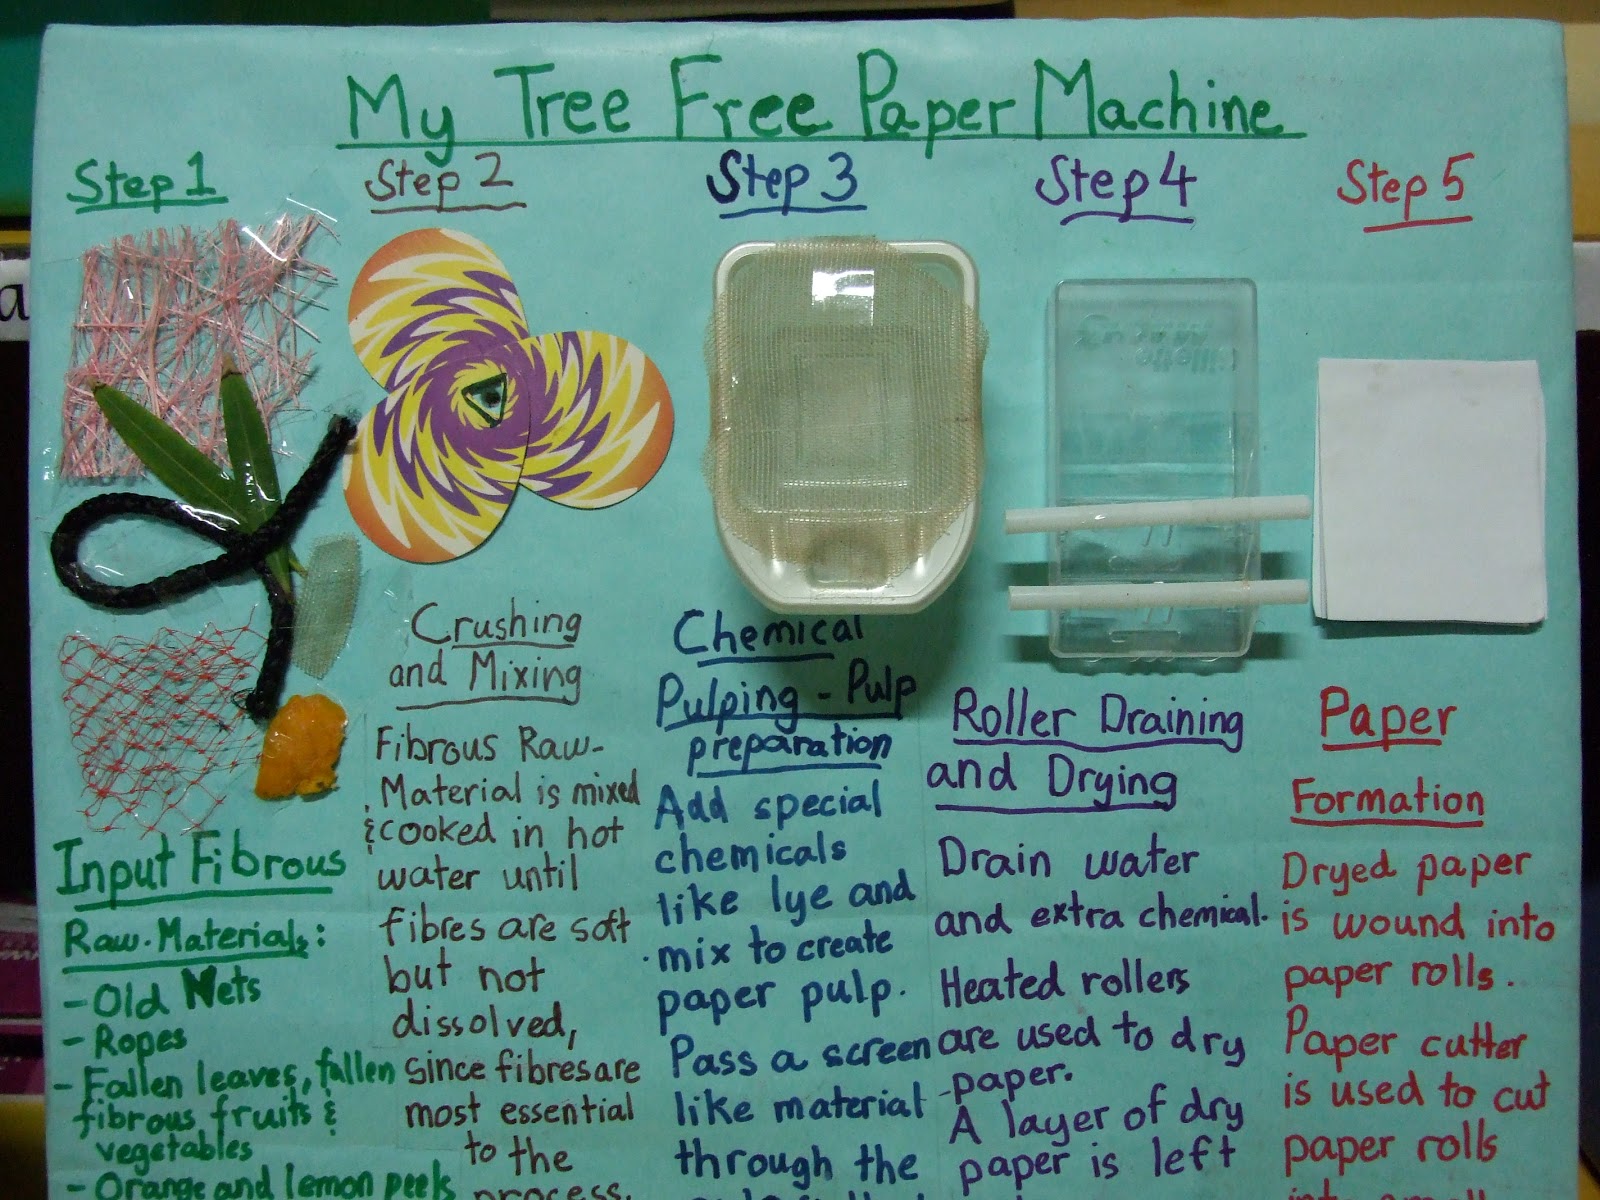 My Tree Free Paper Machine
Step 1
Input Fibrous
Raw-Materials:
- Old Nets
- Ropes
- Fallen leaves, fallen
fibrous fruits &
vegetables
- Orange and lemon peels
Step 2
Crushing
and Mixing
Fibrous Raw-
Material is mixed
& cooked in hot
water until
fibres are soft
but not
dissolved,
since fibres are
most essential
to the
process.
Step 3
Chemical
Pulping - Pulp
preparation
Add special
chemicals
like lye and
mix to create
paper pulp.
Pass a screen
like material
through the
Step 4
Roller Draining
and Drying
Drain water
and extra chemical.
Heated rollers
are used to dry
paper.
A layer of dry
paper is left
Step 5
Paper
Formation
Dryed paper
is wound into
paper rolls.
Paper cutter
is used to cut
paper rolls
into small
a